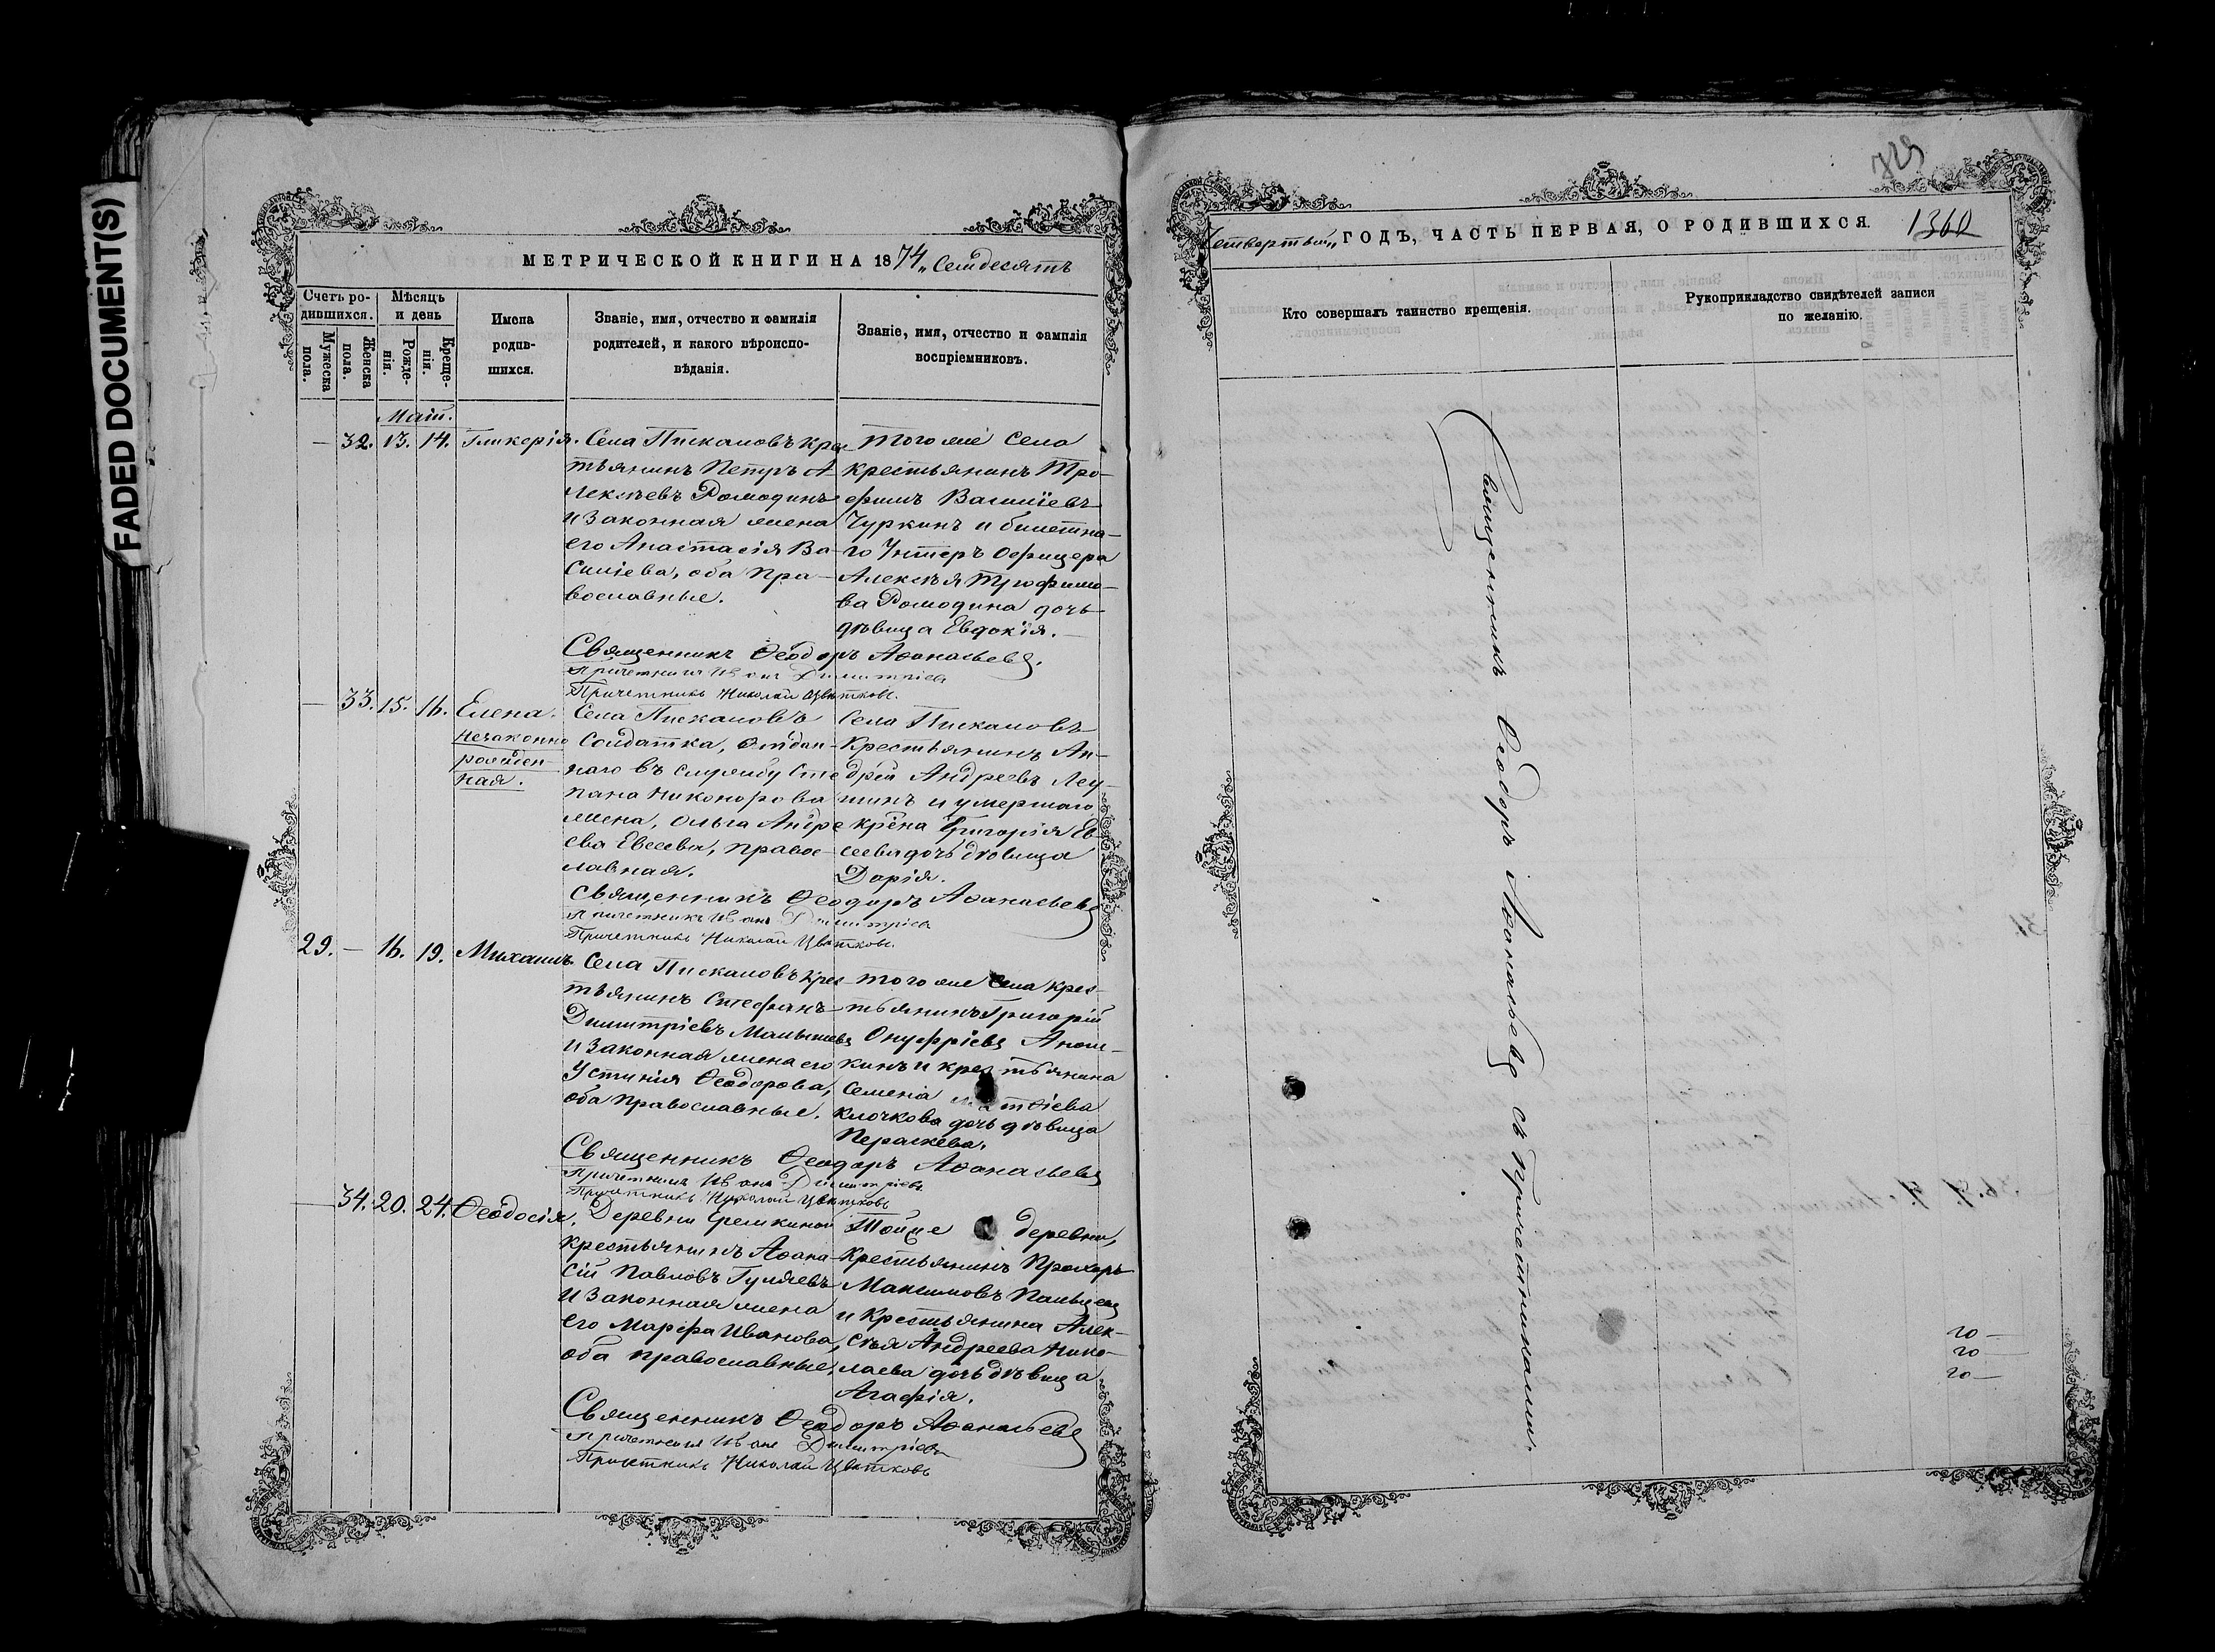 FADED DOCUMENT(S)
МЕТРИЧЕСКОЙ КНИГИ НА 1874 „Семдесятъ
Счетъ ро-
дившихся.
Мужеска
пола.
Женска
пола.
Мѣсяцъ
и день
Рожде-
нія.
Креще-
нія.
Имена
родив-
шихся.
Званіе, имя, отчество и фамилія
родителей, и какого вѣроиспо-
вѣданія.
Званіе, имя, отчество и фамилія
воспріемниковъ.
Май.
— 32. 13. 14. Гликерія.
Села Пискаловъ крес
тьянинъ Петръ А
лексѣевъ Ромодинъ
и законная жена
его Анастасія Ва-
силіева, оба пра-
вославные.
Того же села
крестьянинъ Тро-
фимъ Василіевъ
Чуркинъ и билетна-
го Унтеръ Офицера
Алексѣя Трофимо-
ва Ромодина дочь
дѣвица Евдокія.
Священникъ Ѳеодоръ Аѳанасьевъ.
Причетникъ Иванъ Димитріевъ
Причетникъ Николай Цвѣтковъ.
— 33. 15. 16. Елена.
незаконно
рожден-
ная.
Села Пискаловъ
Солдатка, отдан-
наго въ службу Сте
пана Никонорова
жена, Ольга Андре
ева Евсеева, правос-
лавная.
Села Пискаловъ
Крестьянинъ Ан-
дрей Андреевъ Леу-
шинъ и умершаго
крѣна Григорія Ев-
сеева дочь дѣвица
Дарія.
Священникъ Ѳеодоръ Аѳанасьевъ
Причетникъ Иванъ Димитріевъ
Причетникъ Николай Цвѣтковъ.
29. — 16. 19. Михаилъ.
Села Пискаловъ крес
тьянинъ Стефанъ
Димитріевъ Малышевъ
и законная жена его
Устинія Ѳеодорова,
оба православные.
Того же села крес-
тьянинъ Григорій
Онуфріевъ Анош-
кинъ и крестьянина
Семена Матѳіева
Клочкова дочь дѣвица
Параскева.
Священникъ Ѳеодоръ Аѳанасьевъ
Причетникъ Иванъ Димитріевъ
Причетникъ Николай Цвѣтковъ
— 34. 20. 24. Ѳеодосія.
Деревни Еремкиной
крестьянинъ Аѳана-
сій Павловъ Гуляевъ
и законная жена
его Марфа Иванова,
оба православные,
Тойже деревни,
Крестьянинъ Прохоръ
Максимовъ
и Крестьянина Алек-
сѣя Андреева Нико-
лаева дочь дѣвица
Агафія.
Священникъ Ѳеодоръ Аѳанасьевъ
Причетникъ Иванъ Димитріевъ
Причетникъ Николай Цвѣтковъ
729
Четвертый „ ГОДЪ, ЧАСТЬ ПЕРВАЯ, О РОДИВШИХСЯ. 1360
Кто совершалъ таинство крещенія.
Рукоприкладство свидѣтелей записи
по желанію.
Священникъ Ѳеодоръ Аѳанасьевъ съ Причетниками.
20 —
20 —
20 —